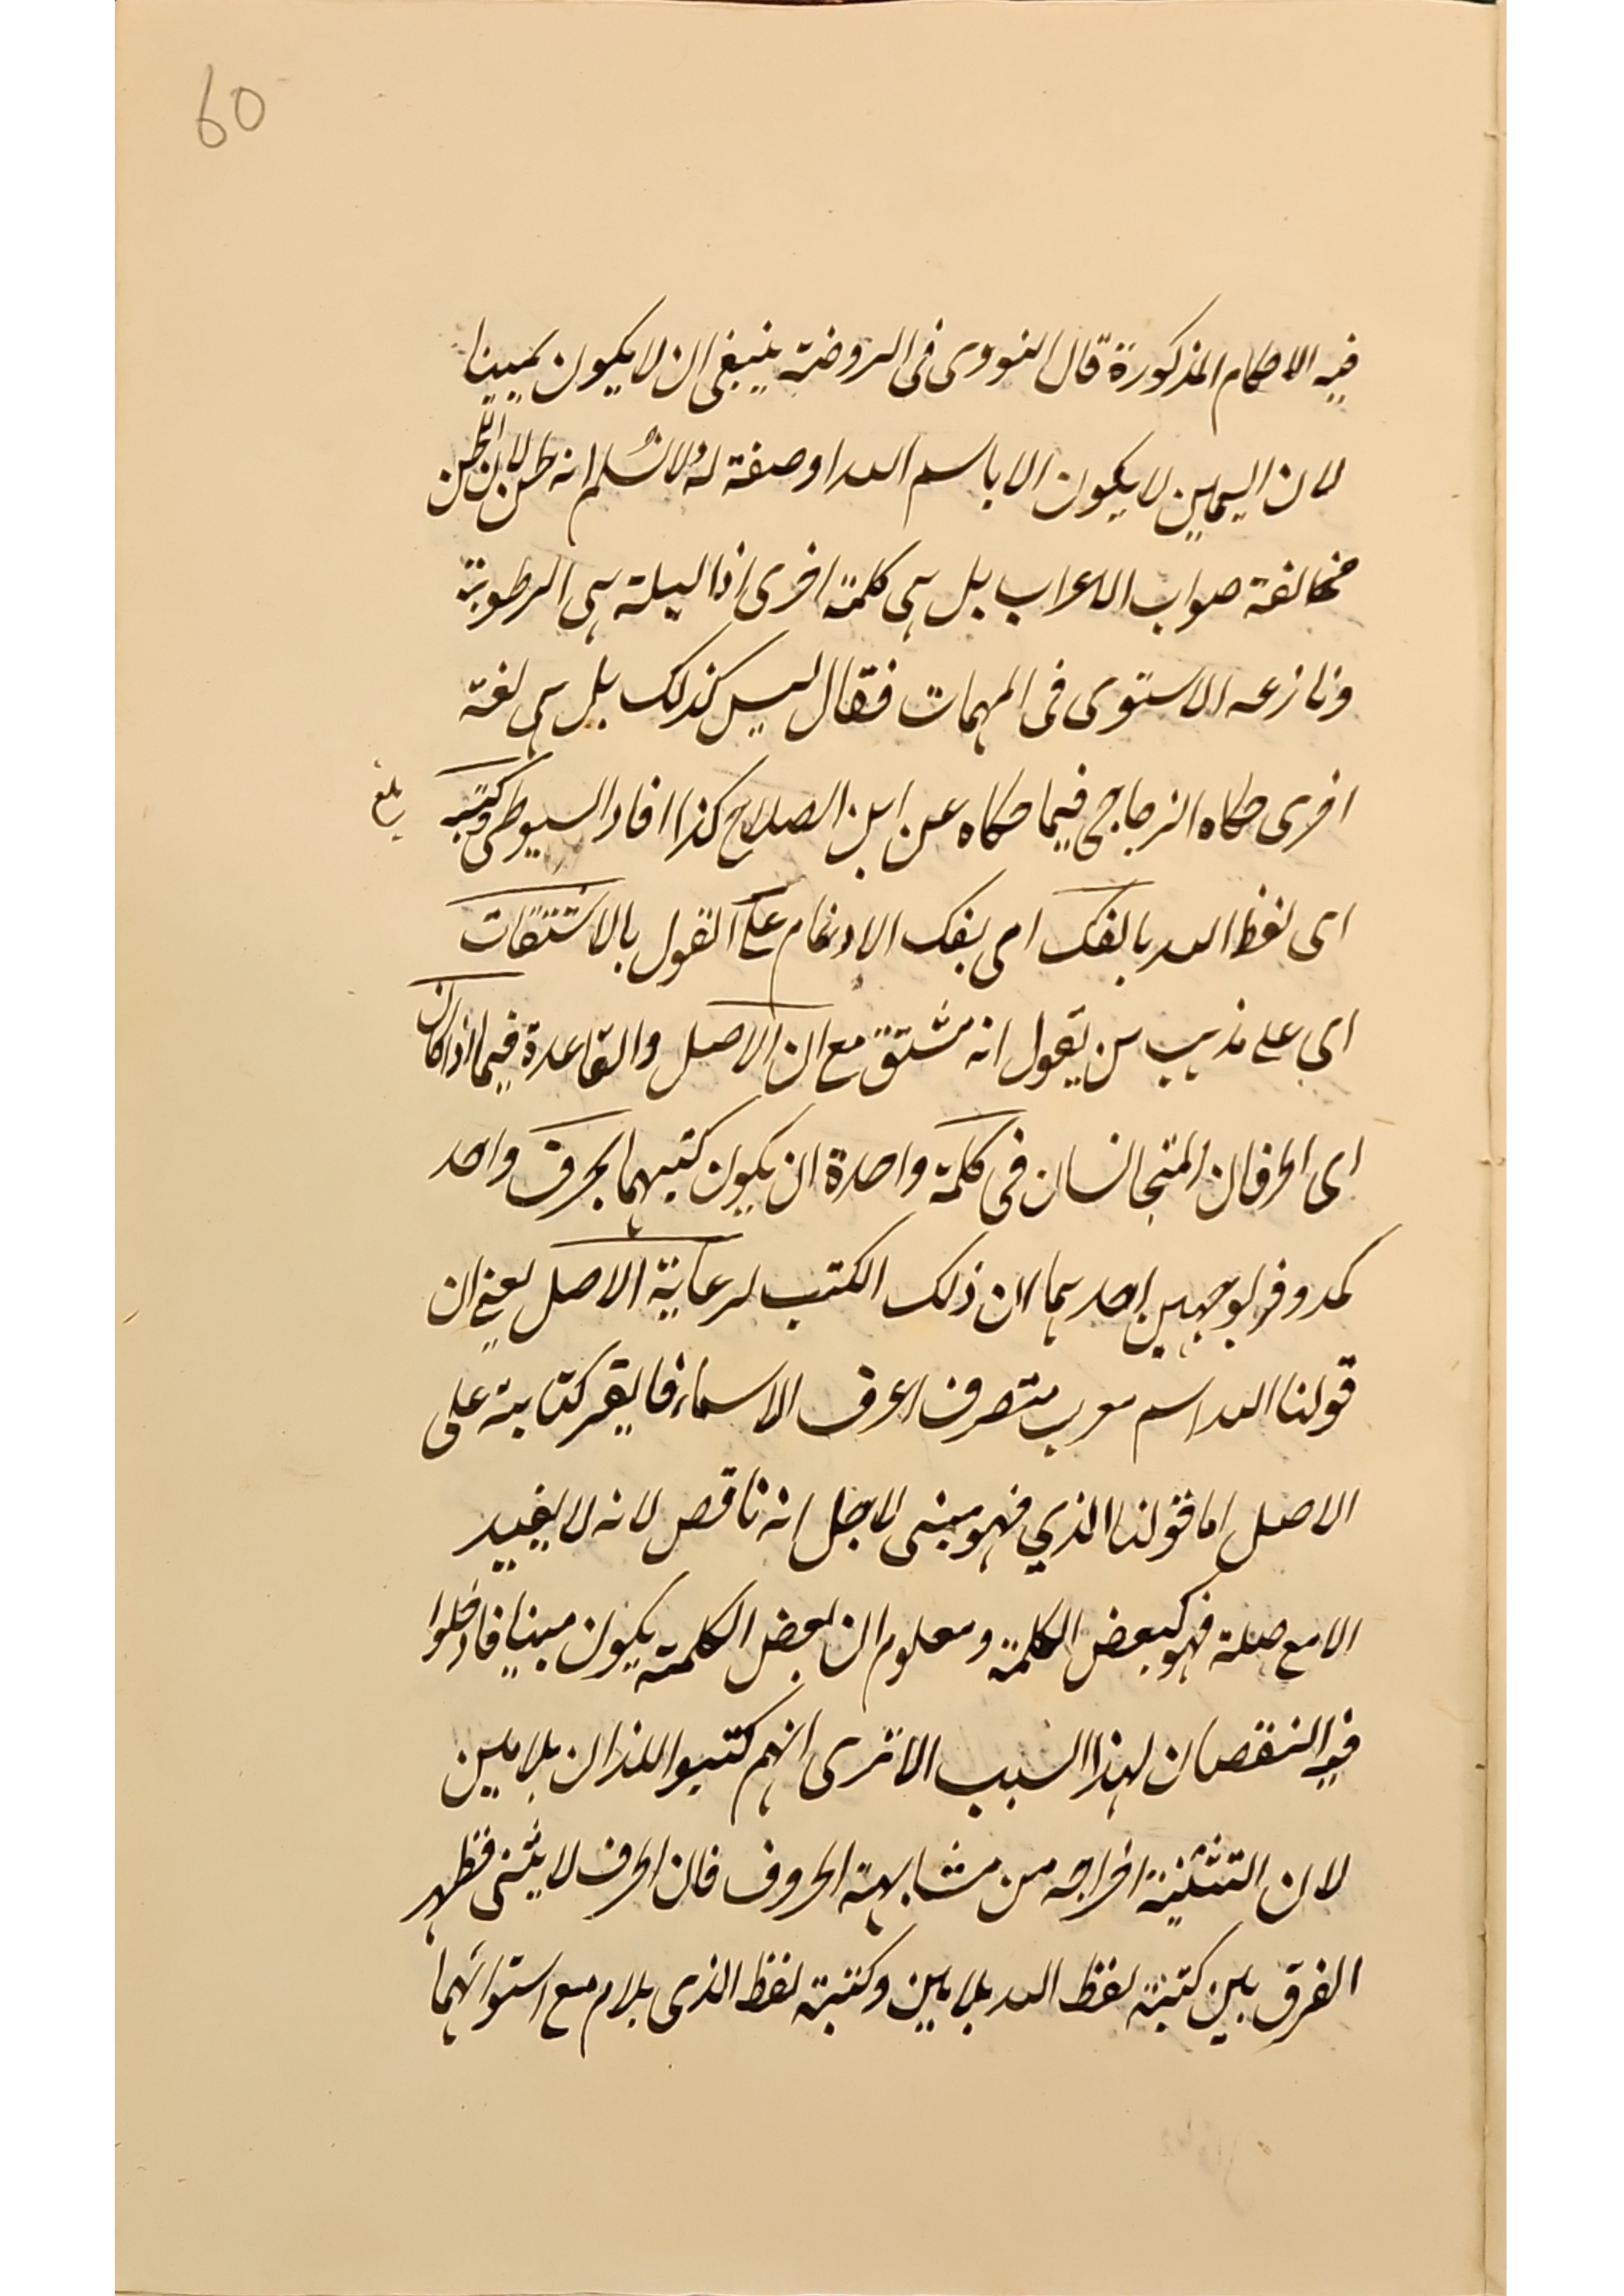 60
فيه الاحكام المذكورة قال النووى فى الروضة ينبغى ان لا يكون يمينا
لان اليمين لا يكون الا باسم الله او صفة له ولا نسلم انه لحن لان اللحن
مخالفة صواب الاعراب بل هى كلمة اخرى اذ البلة هى الرطوبة
ونازعه الاسنوى فى المهمات فقال ليس كذلك بل هى لغة
اخرى حكاه الزجاجى فيما حكاه عن ابن الصلاح كذا افاد السيوطى وكتبه
بلغ
اى لفظ الله بالفك اى بفك الادغام على القول بالاشتقاق
اى على مذهب من يقول انه مشتق مع ان الاصل والقاعدة فيما اذا كان
اى الحرفان المتجانسان فى كلمة واحدة ان يكون كتبهما بحرف واحد
كمد وفر لوجهين احدهما ان ذلك الكتب لرعاية الاصل يعنى ان
قولنا الله اسم معرب متصرف اعرف الاسماء كتابته على
الاصل اما قولنا الذي فهو مبنى لاجل انه ناقص لانه لا يفيد
الا مع صلة فهو كبعض الكلمة ومعلوم ان بعض الكلمة يكون مبنيا فادخلوا
فيه النقصان لهذا السبب الا ترى انهم كتبوا اللذان بلامين
لان التثنية اخراجه من مشابهة الحروف فان الحرف لا يثنى فظهر
الفرق بين كتبة لفظ الله بلامين وكتبة لفظ الذى بلام مع استوائهما